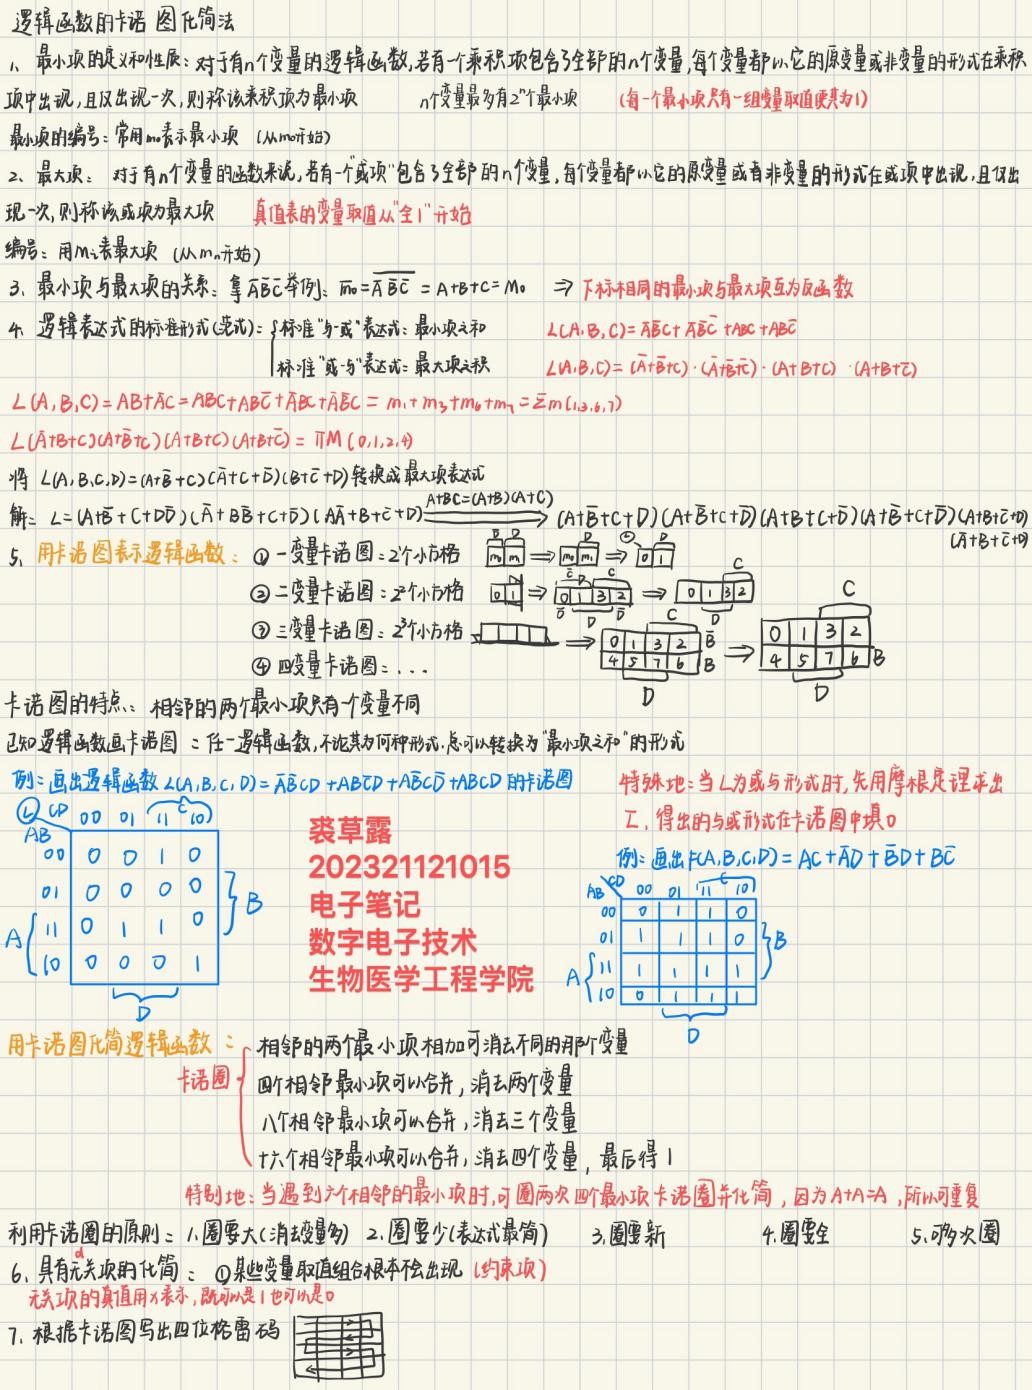 逻辑函数的卡诺图化简法
1、最小项的定义和性质：对于有n个变量的逻辑函数,若有一个乘积项包含了全部的n个变量,每个变量都以它的原变量或非变量的形式在乘积
项中出现,且仅出现一次,则称该乘积项为最小项 n个变量最多有2ⁿ个最小项 (每一个最小项只有一组变量取值使其为1)
最小项的编号：常用m₀表示最小项 (从m₀开始)
2、最大项：对于有n个变量的函数来说,若有一个"或项"包含了全部的n个变量,每个变量都以它的原变量或者非变量的形式在或项中出现,且仅出
现一次,则称该或项为最大项 真值表的变量取值从"全1"开始
编号：用Mᵢ表最大项 (从mₙ开始)
3、最小项与最大项的关系：拿A̅B̅C̅举例：m̅₀=A̅B̅C̅ = A+B+C = M₀ ⇒ 下标相同的最小项与最大项互为反函数
4、逻辑表达式的标准形式(范式)：标准"与-或"表达式：最小项之和 L(A,B,C)=A̅B̅C+A̅B̅C̅+ABC+ABC̅
标准"或-与"表达式：最大项之积 L(A,B,C)=(A̅+B̅+C)·(A̅+B̅+C̅)·(A+B+C)·(A+B+C̅)
L(A,B,C)=AB+A̅C=ABC+ABC̅+A̅BC+A̅B̅C = m₁+m₃+m₆+m₇=Σm(1,3,6,7)
L(A̅+B+C)(A+B̅+C)(A+B+C)(A+B+C̅) = ΠM(0,1,2,4)
将 L(A,B,C,D)=(A+B̅+C)(A̅+C+D̅)(B+C̅+D)转换成最大项表达式
解：L=(A+B̅+C+DD̅)(A̅+BB̅+C+D̅)(AA̅+B+C̅+D) A+BC=(A+B)(A+C) (A+B̅+C+D)(A+B̅+C+D̅)(A̅+B+C+D̅)(A̅+B̅+C+D̅)(A+B+C̅+D)
(A̅+B+C̅+D)
5、用卡诺图表示逻辑函数：①一变量卡诺图：2¹个小方格 D̅ D m₀ m₁ ⇒ m₀ m₁ ⇒ L D 0 1
②二变量卡诺图：2²个小方格 0 1 ⇒ C̅ C 0 1 3 2 D̅ D D̅ ⇒ C 0 1 3 2 D
③三变量卡诺图：2³个小方格 ⇒ C 0 1 3 2 B̅ 4 5 7 6 B D ⇒ C 0 1 3 2 4 5 7 6 B D
④四变量卡诺图：...
卡诺图的特点：相邻的两个最小项只有一个变量不同
已知逻辑函数画卡诺图：任一逻辑函数,不论其为何种形式,总可以转换为"最小项之和"的形式
例：画出逻辑函数 L(A,B,C,D)=A̅B̅CD+ABC̅D+AB̅CD̅+ABCD的卡诺图
特殊地：当L为或与形式时,先用摩根定理求出
L̅, 得出的与或形式在卡诺图中填0
L CD 00 01 11 C 10
AB
00 0 0 1 0
01 0 0 0 0
B
A 11 0 1 1 0
10 0 0 0 1
D
裘草露
202321121015
电子笔记
数字电子技术
生物医学工程学院
例：画出F(A,B,C,D)=AC+A̅D+B̅D+BC̅
AB CD 00 01 11 C 10
00 0 1 1 0
01 1 1 1 0
B
A 11 1 1 1 1
10 0 1 1 1
D
用卡诺图化简逻辑函数：
卡诺圈
相邻的两个最小项相加可消去不同的那个变量
四个相邻最小项可以合并, 消去两个变量
八个相邻最小项可以合并, 消去三个变量
十六个相邻最小项可以合并, 消去四个变量, 最后得1
特别地：当遇到六个相邻的最小项时,可圈两次四个最小项卡诺圈并化简, 因为A+A=A, 所以可重复
利用卡诺圈的原则：1.圈要大(消去变量多) 2.圈要少(表达式最简) 3.圈要新 4.圈要全 5.可多次圈
d
6、具有无关项的化简：①某些变量取值组合根本不会出现 (约束项)
无关项的真值用×表示, 既可以是1也可以是0
7、根据卡诺图写出四位格雷码